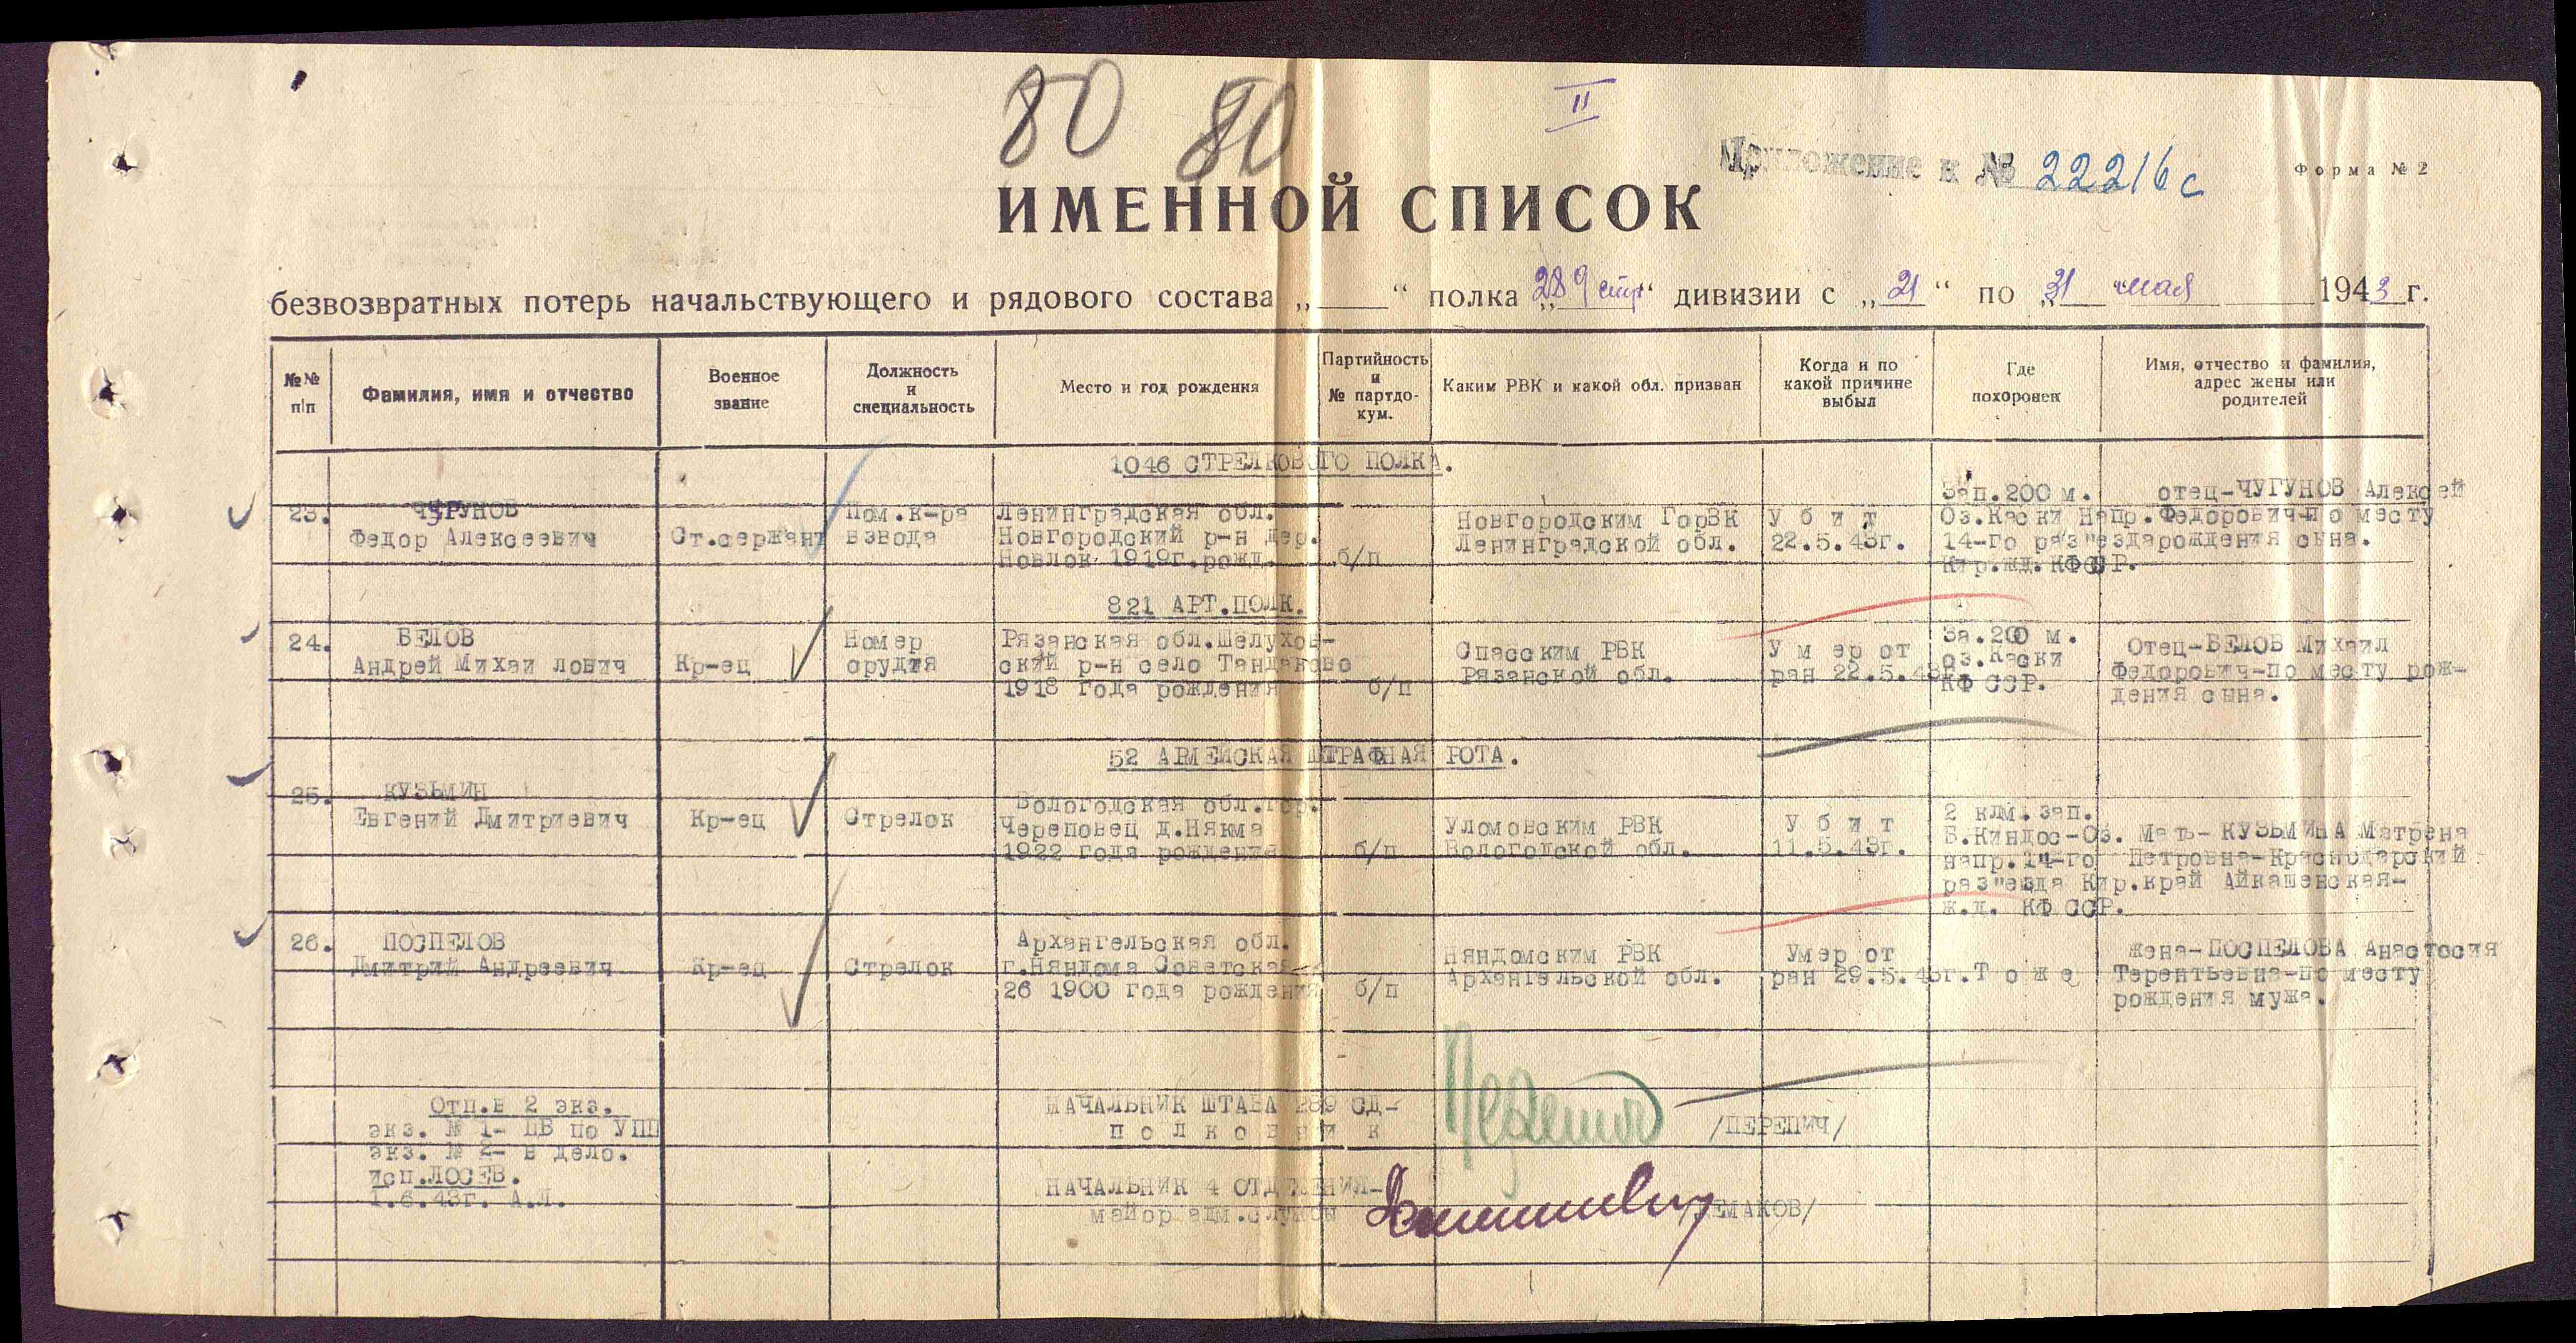 80 80
II
Приложение к № 22216с
Форма № 2
ИМЕННОЙ СПИСОК
безвозвратных потерь начальствующего и рядового состава „ “ полка „289 стр“ дивизии с „21“ по „31 мая 1943 г.
№№ п/п
Фамилия, имя и отчество
Военное звание
Должность и специальность
Место и год рождения
Партийность и № партдокум.
Каким РВК и какой обл. призван
Когда и по какой причине выбыл
Где похоронен
Имя, отчество и фамилия, адрес жены или родителей
1046 СТРЕЛКОВОГО ПОЛКА.
23.
ЧУГУНОВ
Федор Алексеевич
Ст.сержант
Пом.к-ра
взвода
Ленинградская обл.
Новгородский р-н дер.
Новлок 1919г.рожд.
б/п
Новгородским ГорВК
Ленинградской обл.
У б и т
22.5.43г.
Зап.200 м.
Оз.Каски Напр.
14-го раз"езда
Кир.жд.КФССР.
отец-ЧУГУНОВ Алексей
Федорович-по месту
рождения сына.
821 АРТ.ПОЛК.
24.
БЕЛОВ
Андрей Михаилович
Кр-ец
Номер
орудия
Рязанская обл.Шелухов-
ский р-н село Тандаково
1918 года рождения
б/п
Спасским РВК
Рязанской обл.
У м ер от
ран 22.5.43г
За.200 м.
оз.Каски
КФ ССР.
Отец-БЕЛОВ Михаил
Федорович-по месту рож-
дения сына.
52 АРМЕЙСКАЯ ШТРАФНАЯ РОТА.
25.
КУЗЬМИН
Евгений Дмитриевич
Кр-ец
Стрелок
Вологодская обл.гор.
Череповец д.Някма
1922 года рождения
б/п
Уломовским РВК
Вологодской обл.
У б и т
11.5.43г.
2 клм.зап.
Б.Киндос-Оз.
напр.14-го
раз"езда Кир.
ж.д. КФ ССР.
Мать-КУЗЬМИНА Матрена
Петровна-Краснодарский
край Айкашенская-
26.
ПОСПЕЛОВ
Дмитрий Андреевич
Кр-ец
Стрелок
Архангельская обл.
г.Няндома Советская
26 1900 года рождения
б/п
Няндомским РВК
Архангельской обл.
Умер от
ран 29.5.43г.
Т о ж е
жена-ПОСПЕЛОВА Анастосия
Терентьевна-по месту
рождения мужа.
Отп.в 2 экз.
экз. № 1- ЦБ по УПП
экз. № 2- в дело.
исп.ЛОСЕВ.
1.6.43г. А.Л.
НАЧАЛЬНИК ШТАБА 289 СД-
п о л к о в н и к
/ПЕРЕПИЧ/
НАЧАЛЬНИК 4 ОТДЕЛЕНИЯ-
майор адм.службы